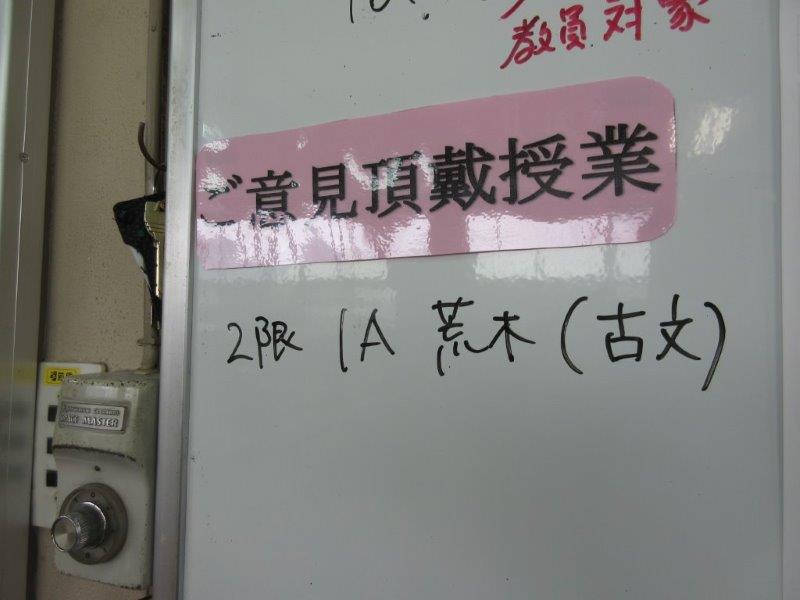 教員対象
ご意見頂戴授業
2限 1A 荒木(古文)